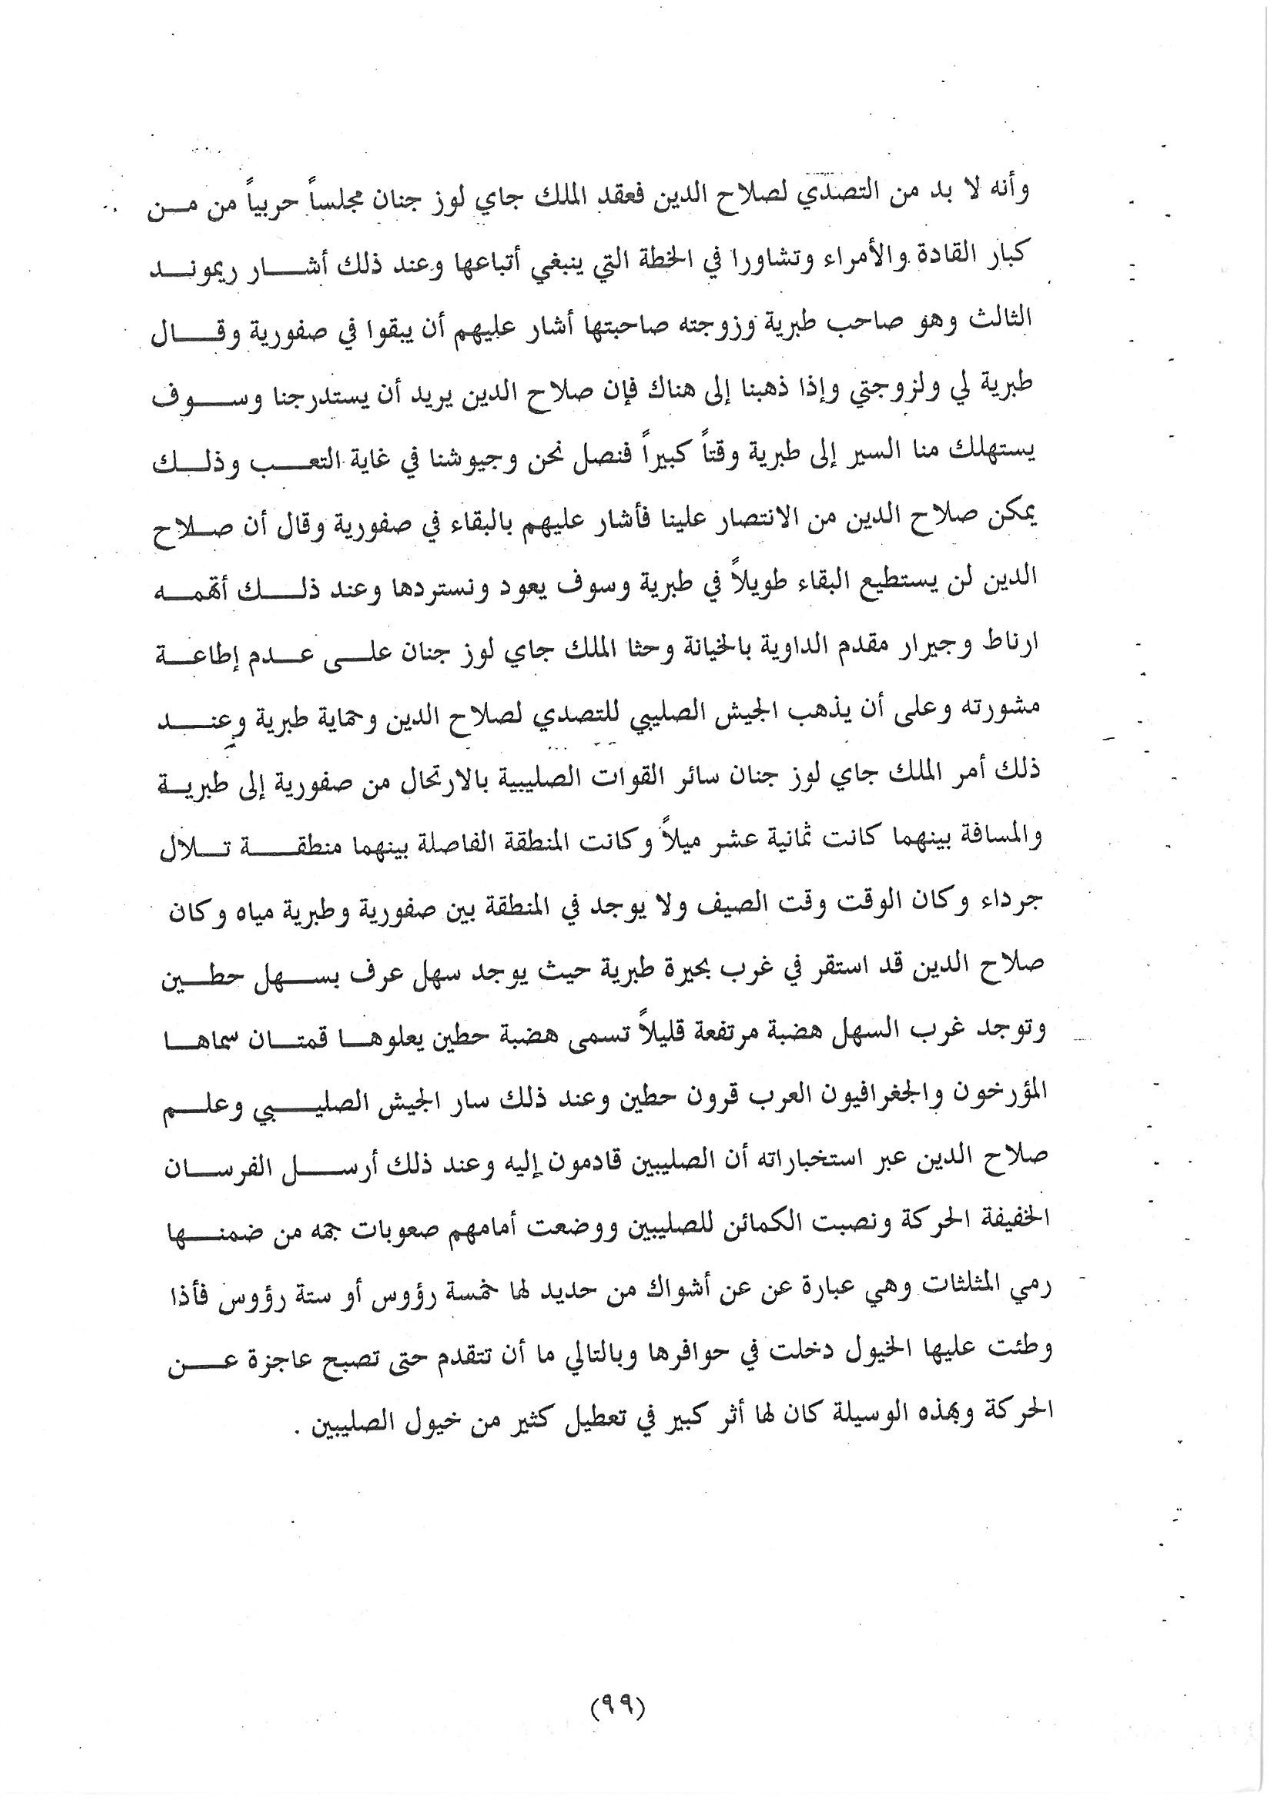 وأنه لا بد من التصدّي لصلاح الدين فعقد الملك جاي لوز جنان مجلساً حربياً من مـن
كبار القادة والأمراء وتشاورا في الخطة التي ينبغي أتباعها وعند ذلك أشـــار ريمونـد
الثالث وهو صاحب طبرية وزوجته صاحبتها أشار عليهم أن يبقوا في صفورية وقـــال
طبرية لي ولزوجتي وإذا ذهبنا إلى هناك فإن صلاح الدين يريد أن يستدرجنا وســـوف
يستهلك منا السير إلى طبرية وقتاً كبيراً فنصل نحن وجيوشنا في غاية التعــب وذلــك
يمكن صلاح الدين من الانتصار علينا فأشار عليهم بالبقاء في صفورية وقال أن صـــلاح
الدين لن يستطيع البقاء طويلاً في طبرية وسوف يعود ونستردها وعند ذلـــك أتهمــه
ارناط وجيرار مقدم الداوية بالخيانة وحثا الملك جاي لوز جنان علــى عــدم إطاعــة
مشورته وعلى أن يذهب الجيش الصليبي للتصدي لصلاح الدين وحماية طبرية وعنـــد
ذلك أمر الملك جاي لوز جنان سائر القوات الصليبية بالارتحال من صفورية إلى طبريـة
والمسافة بينهما كانت ثمانية عشر ميلاً وكانت المنطقة الفاصلة بينهما منطقـــة تـــلال
جرداء وكان الوقت وقت الصيف ولا يوجد في المنطقة بين صفورية وطبرية مياه وكان
صلاح الدين قد استقر في غرب بحيرة طبرية حيث يوجد سهل عرف بســـهل حطــين
وتوجد غرب السهل هضبة مرتفعة قليلاً تسمى هضبة حطين يعلوهــا قمتــان سماهــا
المؤرخون والجغرافيون العرب قرون حطين وعند ذلك سار الجيش الصليـــبي وعلــم
صلاح الدين عبر استخباراته أن الصليبين قادمون إليه وعند ذلك أرســـل الفرســان
الخفيفة الحركة ونصبت الكمائن للصليبين ووضعت أمامهم صعوبات جمه من ضمنـــها
رمي المثلثات وهي عبارة عن عن أشواك من حديد لها خمسة رؤوس أو ستة رؤوس فأذا
وطئت عليها الخيول دخلت في حوافرها وبالتالي ما أن تتقدم حتى تصبح عاجزة عـــن
الحركة وبهذه الوسيلة كان لها أثر كبير في تعطيل كثير من خيول الصليبين .
(٩٩)